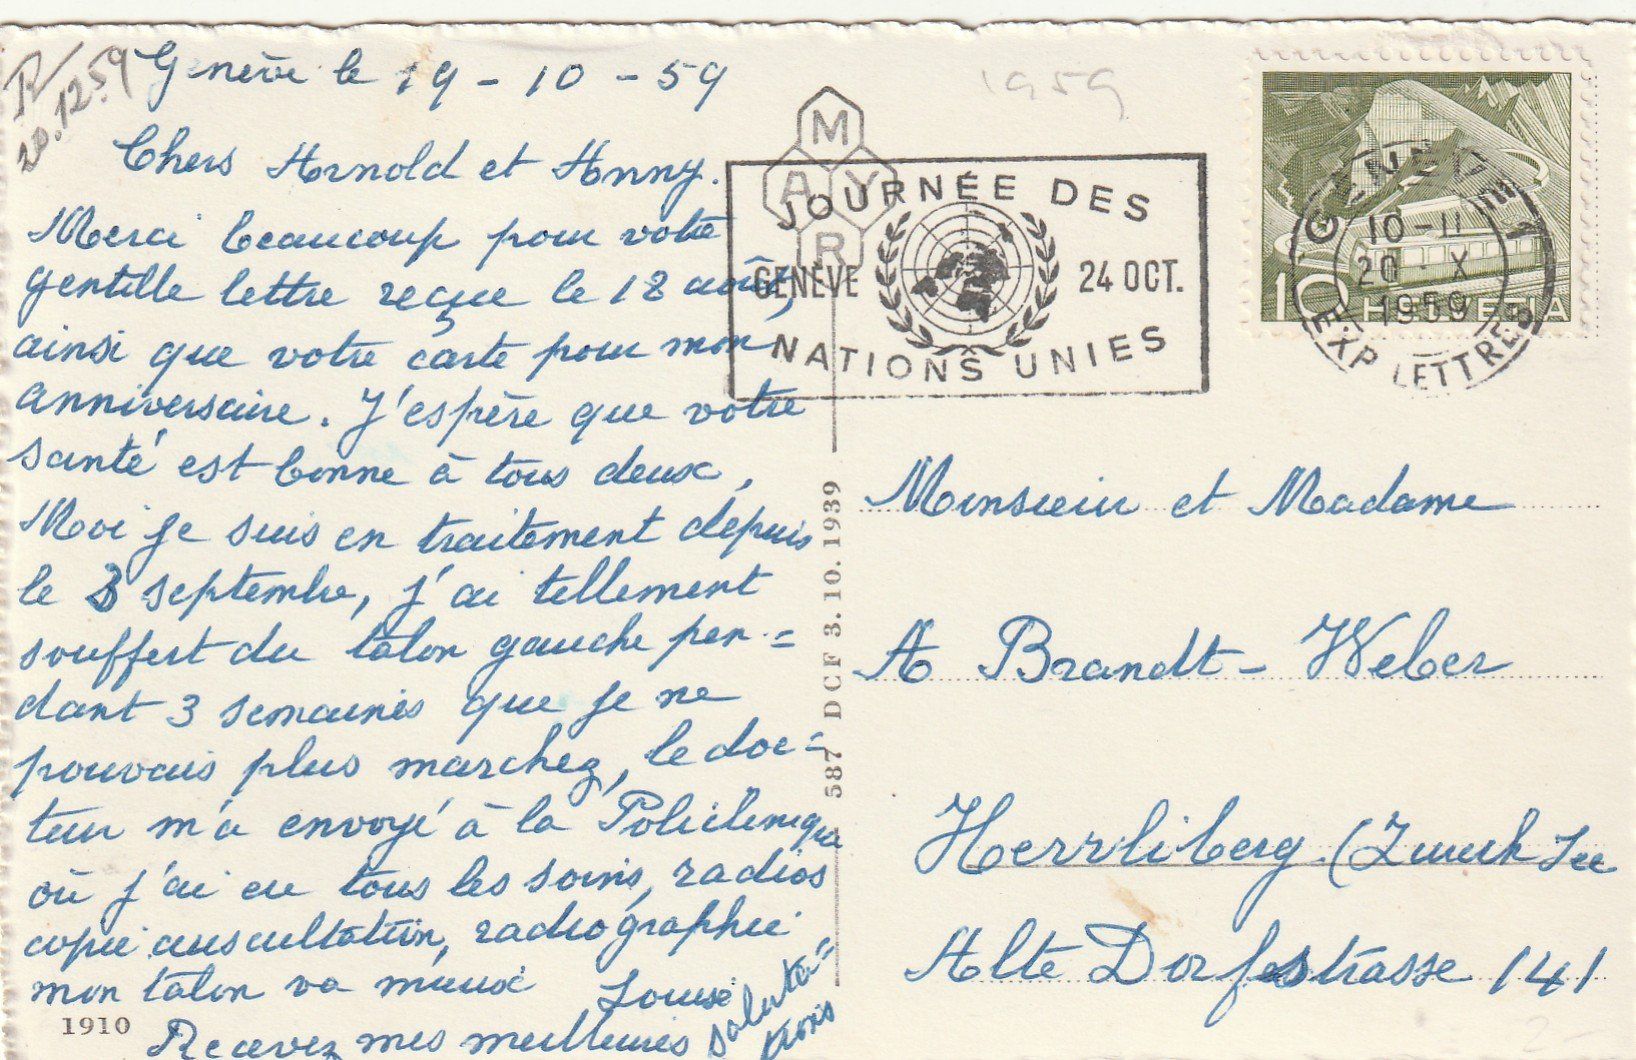 R/
20.12.59
Genève le 19-10-59
Chers Arnold et Anny.
Merci beaucoup pour votre
gentille lettre reçue le 18 août,
ainsi que votre carte pour mon
anniversaire. J'espère que votre
santé est bonne à tous deux,
Moi je suis en traitement depuis
le 3 septembre, j'ai tellement
souffert du talon gauche pen=
dant 3 semaines que je ne
pouvais plus marchez, le doc=
teur m'a envoyé à la Policlinique
où j'ai eu tous les soins, radios
copie auscultation, radiographie
mon talon va mieux Louise
Recevez mes meilleures saluta=
tions
1910
587 DCF 3.10.1939
1959
MAYR
JOURNÉE DES
GENÈVE 24 OCT.
NATIONS UNIES
GENÈVE 1
10-11
20-X
1959
EXP. LETTRES
10 HELVETIA
Monsieur et Madame
A Brandt-Weber
Herrliberg (Zurich See
Alte Dorfstrasse 141
2-